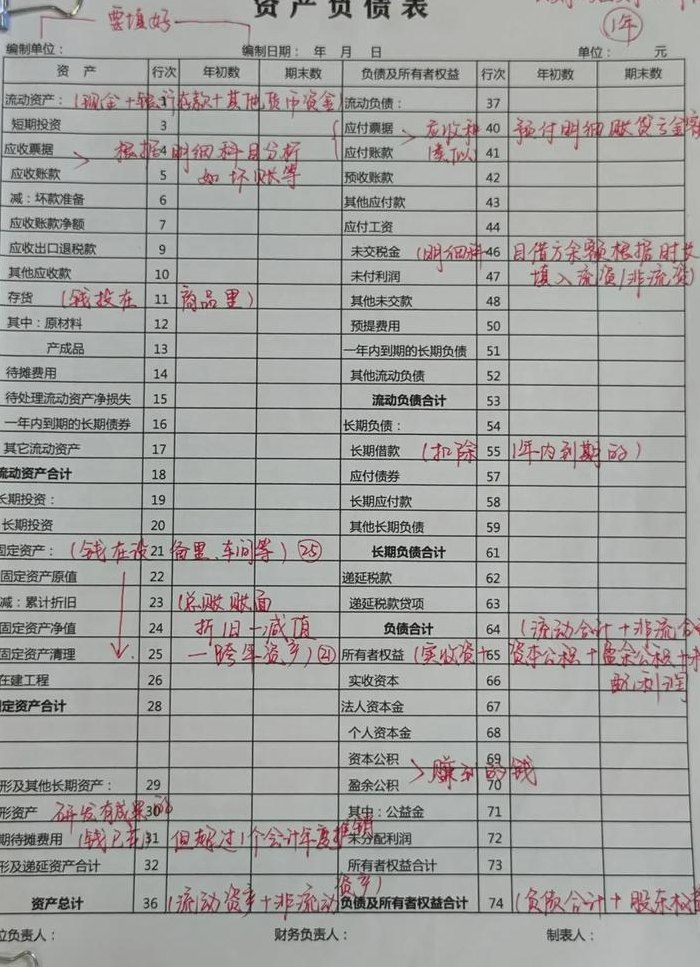 资产负债表
要填好
1年
编制单位： 编制日期： 年 月 日 单位： 元
资 产 行次 年初数 期末数 负债及所有者权益 行次 年初数 期末数
流动资产： (现金+银行存款+其他货币资金) 流动负债： 37
短期投资 3 应付票据 40 预付明细账贷方金额
应收票据 4 根据明细科目分析 应付账款 (类似) 41
应收账款 5 如坏账等 预收账款 42
减：坏款准备 6 其他应付款 43
应收账款净额 7 应付工资 44
应收出口退税款 9 未交税金 (明细科 46 目借方余额根据时长
其他应收款 10 未付利润 47 填入流资/非流资)
存货 (钱投在 11 商品里) 其他未交款 48
其中：原材料 12 预提费用 50
产成品 13 一年内到期的长期负债 51
待摊费用 14 其他流动负债 52
待处理流动资产净损失 15 流动负债合计 53
一年内到期的长期债券 16 长期负债： 54
其它流动资产 17 长期借款 (扣除 55 1年内到期的)
流动资产合计 18 应付债券 57
长期投资： 19 长期应付款 58
长期投资 20 其他长期负债 59
固定资产： (钱在设 21 备里、车间等) 25 长期负债合计 61
固定资产原值 22 递延税款 62
减：累计折旧 23 (总账账面 递延税款贷项 63
固定资产净值 24 折旧-减值 负债合计 64 (流动合计+非流合
固定资产清理 25 一跨年资产) 21 所有者权益 (实收资 65 资本公积+盈余公积+
在建工程 26 实收资本 66 配利润
固定资产合计 28 法人资本金 67
个人资本金 68
资本公积 69 赚到的钱
形及其他长期资产： 29 盈余公积 70
形资产 研发有成果的 30 其中：公益金 71
期待摊费用 (钱已花 31 但超过1个会计年度摊销 未分配利润 72
形及递延资产合计 32 所有者权益合计 73
资产总计 36 (流动资产+非流动资产) 负债及所有者权益合计 74 (负债合计+股东权益
位负责人： 财务负责人： 制表人：